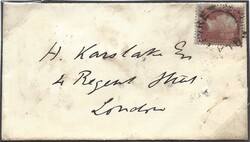 H. Karslake Esq
4 Regent Street
London